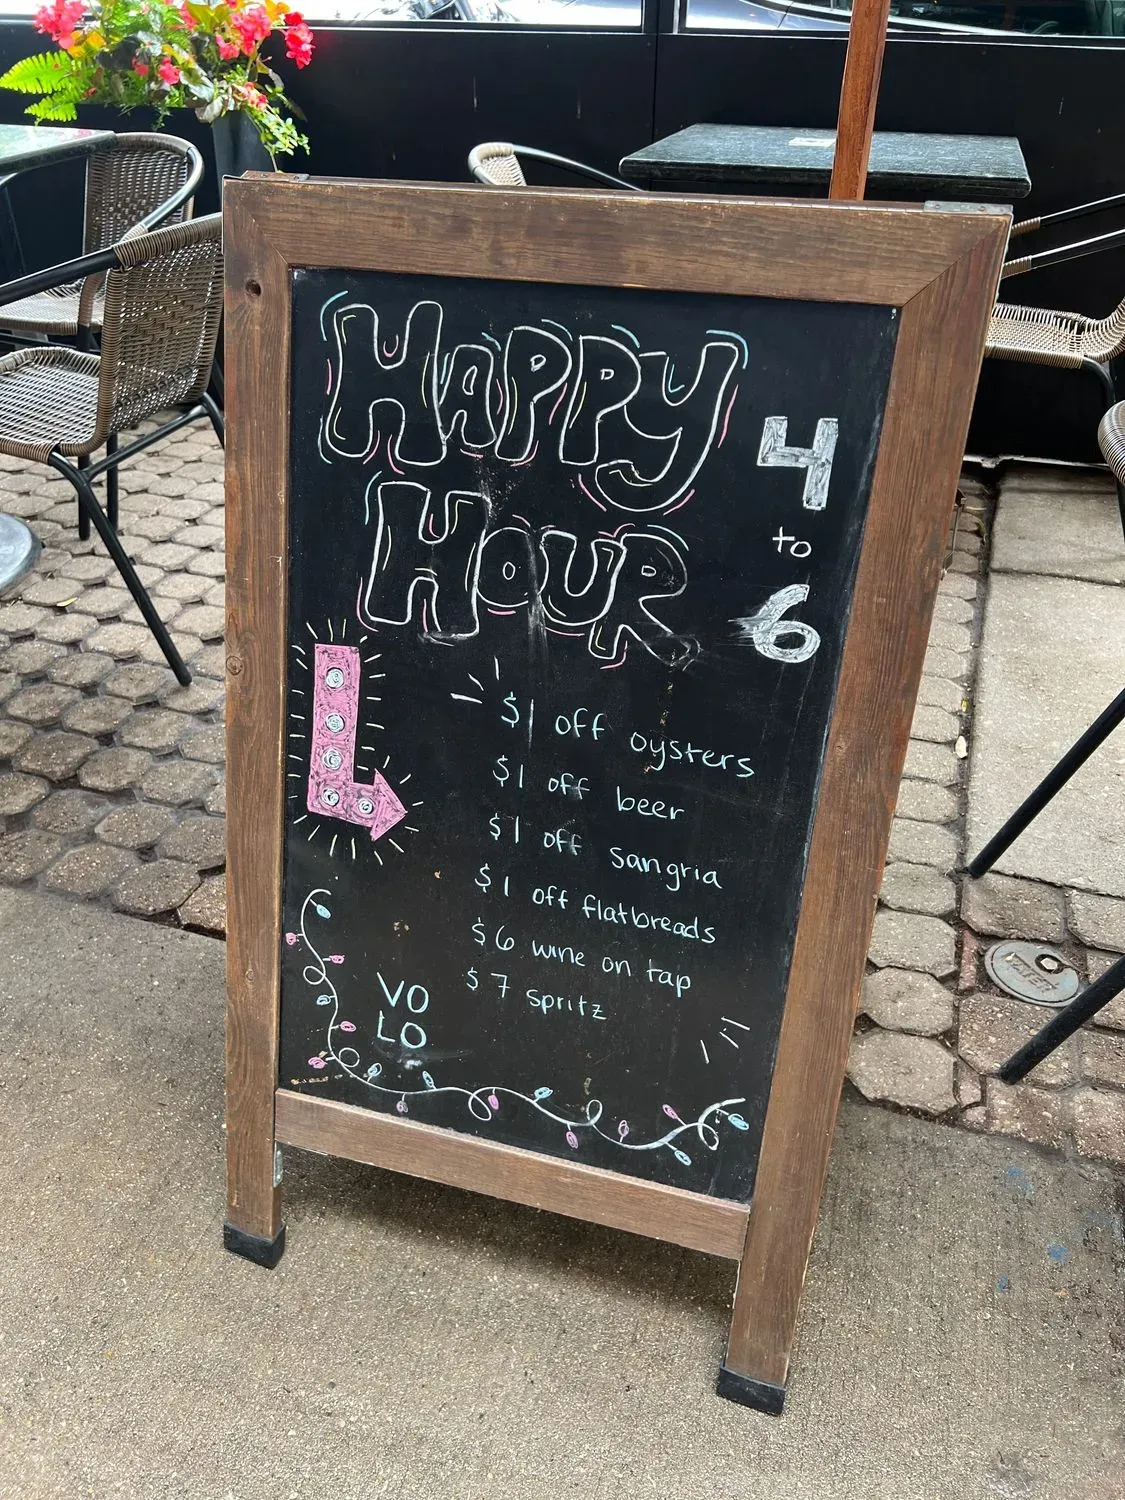 HAPPY
HOUR
4
to
6
$1 off oysters
$1 off beer
$1 off sangria
$1 off flatbreads
$6 wine on tap
$7 spritz
VO
LO
WATER